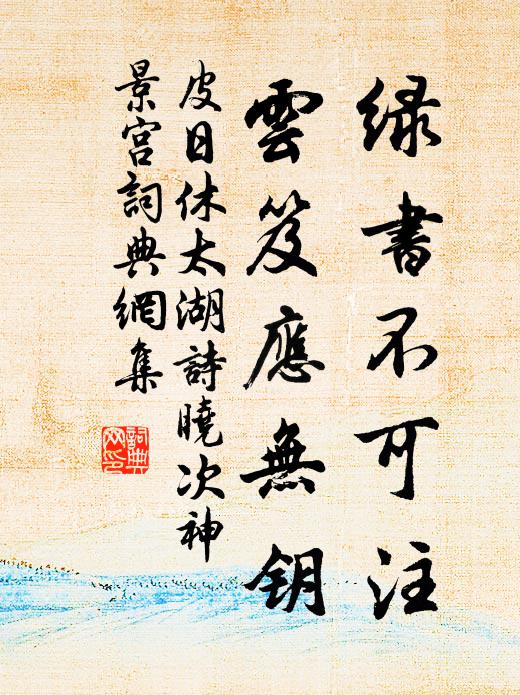 緑書不可注
雲笈應無鈅
皮日休太湖詩曉次神
景宮詞典網集
詞典
网印